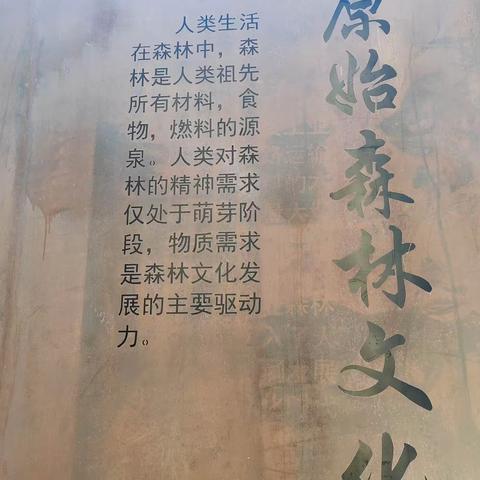 原始森林文化
人类生活
在森林中，森
林是人类祖先
所有材料，食
物，燃料的源
泉。人类对森
林的精神需求
仅处于萌芽阶
段，物质需求
是森林文化发
展的主要驱动
力。